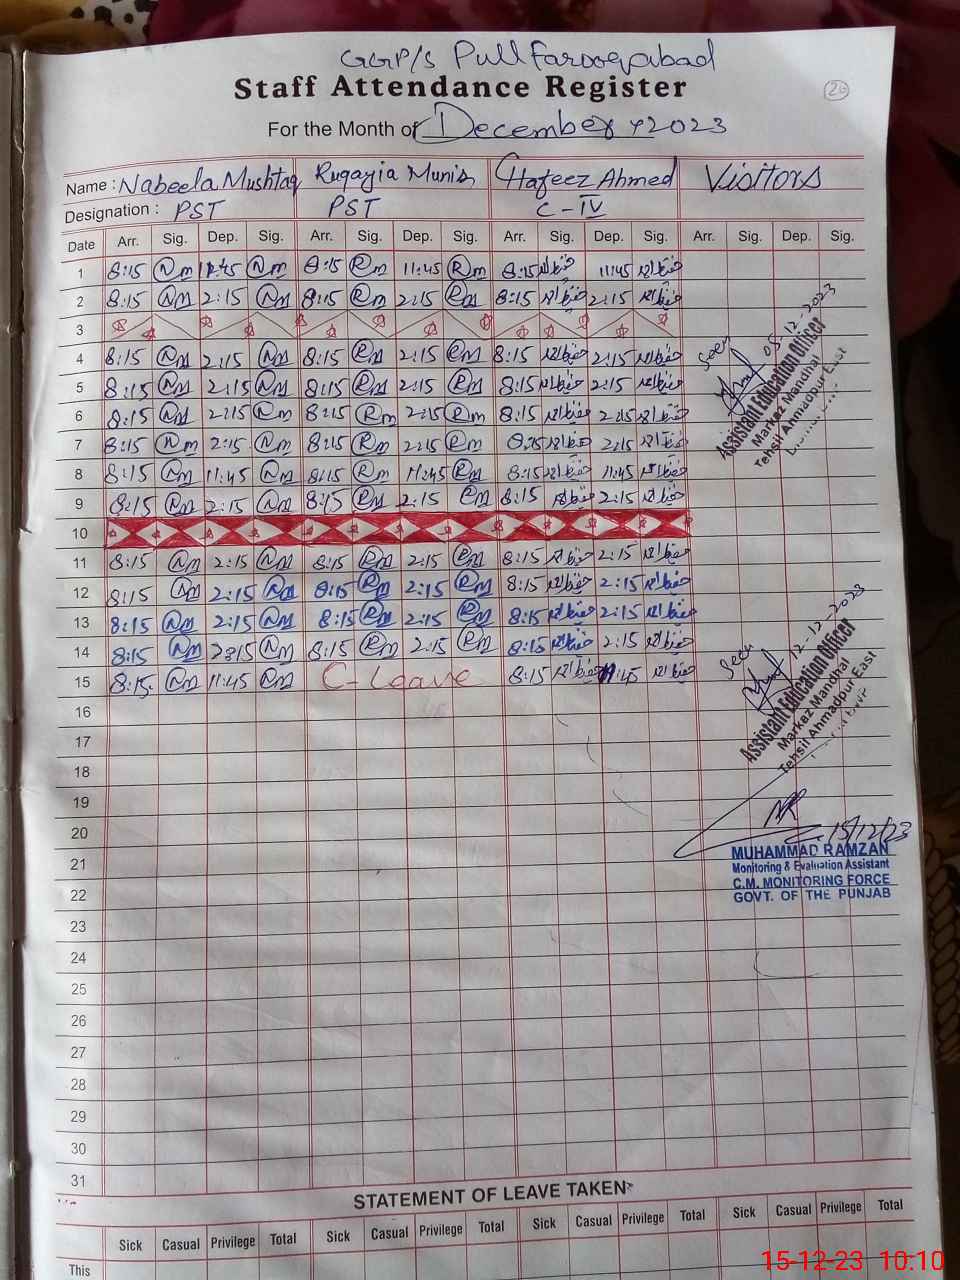 GGP/S Pull Farooqabad
Staff Attendance Register
26
For the Month of December 2023
Name : Nabeela Mushtaq Ruqayia Munir Hafeez Ahmed Visitors
Designation : PST PST C-IV
Date Arr. Sig. Dep. Sig. Arr. Sig. Dep. Sig. Arr. Sig. Dep. Sig. Arr. Sig. Dep. Sig.
1 8:15 Nm 11:45 Nm 8:15 Rm 11:45 Rm 8:15 11:45
2 8:15 Nm 2:15 Nm 8:15 Rm 2:15 Rm 8:15 2:15
3
4 8:15 Nm 2:15 Nm 8:15 Rm 2:15 Rm 8:15 2:15
5 8:15 Nm 2:15 Nm 8:15 Rm 2:15 Rm 8:15 2:15
6 8:15 Nm 2:15 Nm 8:15 Rm 2:15 Rm 8:15 2:15
7 8:15 Nm 2:15 Nm 8:15 Rm 2:15 Rm 8:15 2:15
8 8:15 Nm 11:45 Nm 8:15 Rm 11:45 Rm 8:15 11:45
9 8:15 Nm 2:15 Nm 8:15 Rm 2:15 Rm 8:15 2:15
10
11 8:15 Nm 2:15 Nm 8:15 Rm 2:15 Rm 8:15 2:15
12 8:15 Nm 2:15 Nm 8:15 Rm 2:15 Rm 8:15 2:15
13 8:15 Nm 2:15 Nm 8:15 Rm 2:15 Rm 8:15 2:15
14 8:15 Nm 2:15 Nm 8:15 Rm 2:15 Rm 8:15 2:15
15 8:15 Nm 11:45 Nm C-Leave 8:15 11:45
16
17
18
19
20
21
22
23
24
25
26
27
28
29
30
31
Seen
05-12-2023
Assistant Education Officer
Markez Mandhal
Tehsil Ahmadpur East
Seen
12-12-2023
Assistant Education Officer
Markez Mandhal
Tehsil Ahmadpur East
15/12/23
MUHAMMAD RAMZAN
Monitoring & Evaluation Assistant
C.M. MONITORING FORCE
GOVT. OF THE PUNJAB
STATEMENT OF LEAVE TAKEN
Sick Casual Privilege Total Sick Casual Privilege Total Sick Casual Privilege Total
This
15-12-23 10:10